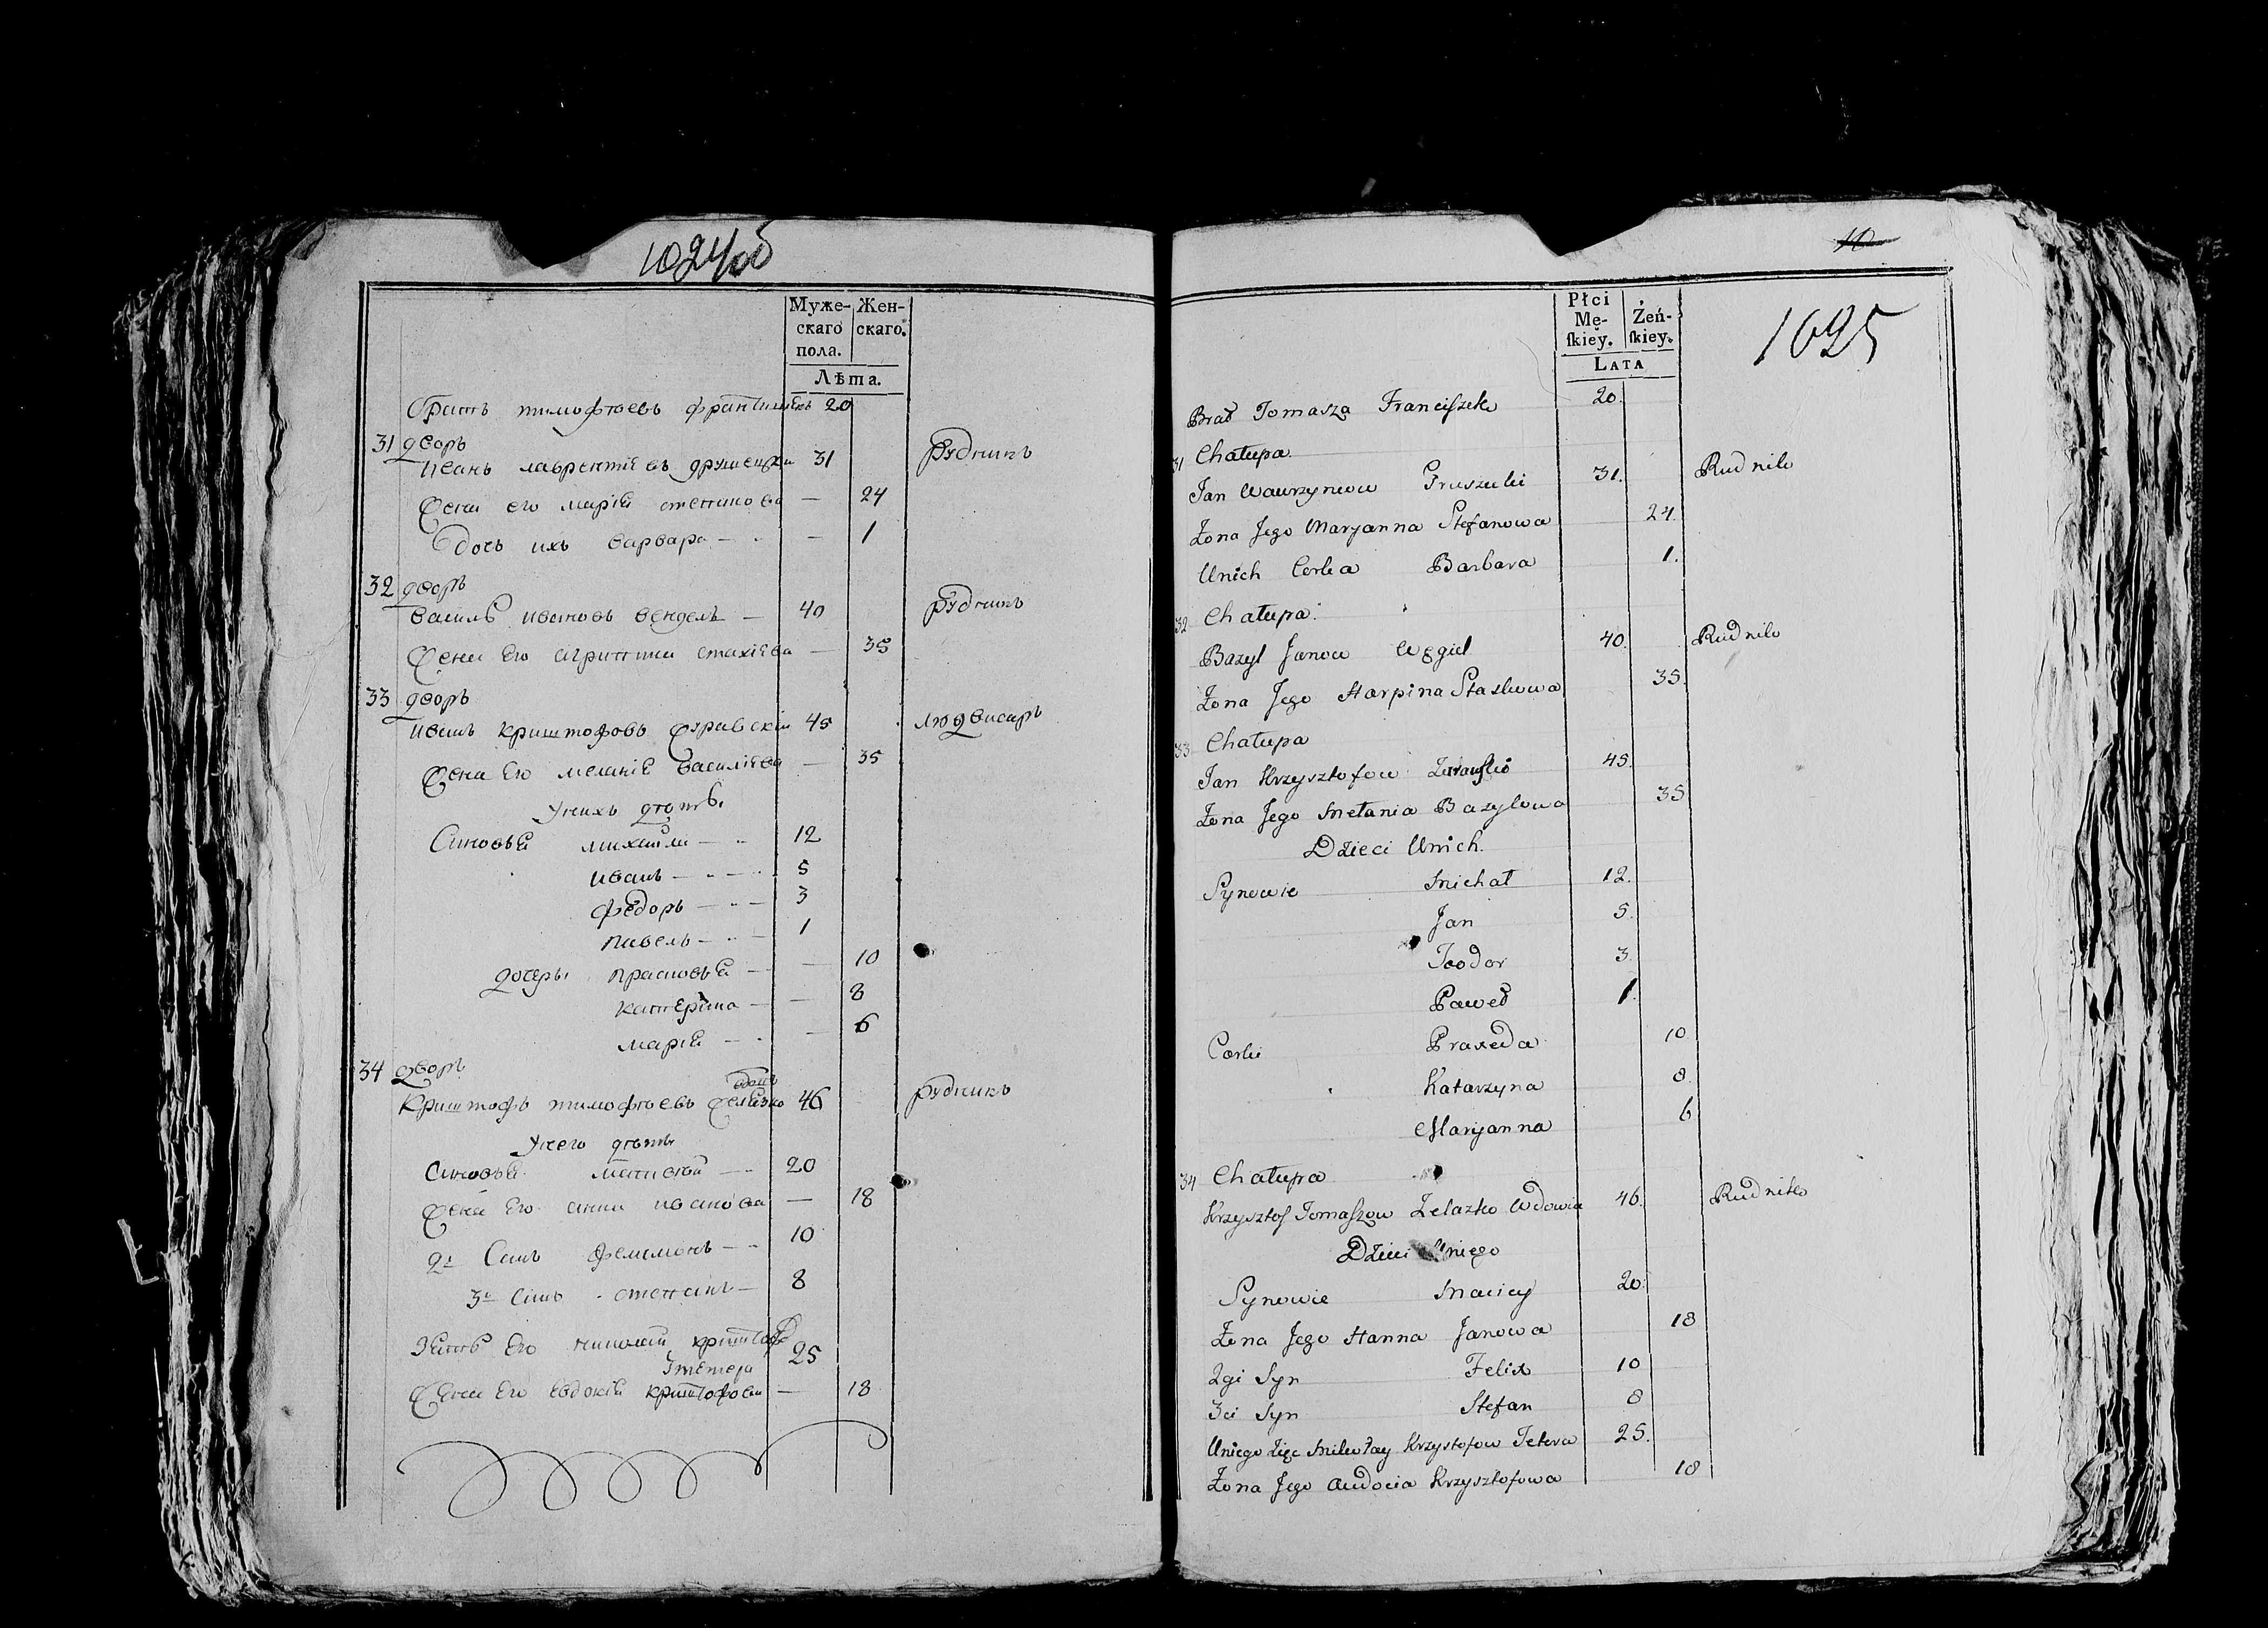 1024об
Муже-
скаго
пола.
Жен-
скаго.
Лѣта.
Братъ тимофѣевъ францишекъ 20
31 дворъ
иванъ лаврентіевъ 31 рудникъ
жена его марія степанова — 24
дочь ихъ варвара — 1
32 дворъ
василь ивановъ вендель — 40 рудникъ
жена его агрипина стахіева — 35
33 дворъ
иванъ криштофовъ журавскій 45 людвисаръ
жена его меланія василіева — 35
У нихъ дѣти
Синовья михайла — 12
иванъ — 5
федоръ — 3
павелъ — 1
дочеры прасковья — 10
катерина — 8
марія — 6
34 дворъ
вдовъ
криштофъ тимофѣевъ желязко 46 рудникъ
У него дѣти
Синовья матвей — 20
жена его анна иванова — 18
2й Синъ филимонъ — 10
3й синъ степанъ — 8
зять его николай криштоф 25
тетера
жена его евдокія криштофова — 18
10
1025
Płci
Mę-
ſkiey.
Żeń-
ſkiey.
LATA
Brat Tomasza Franciſzek 20.
31 Chałupa
Jan Wawrzyncow Gruszecki 31. Rudnik
Żona Jego Maryanna Stefanowa 24.
Unich Corka Barbara 1.
32 Chałupa
Bazyl Janow Węgiel 40. Rudnik
Żona Jego Harpina Staskowa 35.
33 Chałupa
Jan Krzysztofow Żurawſki 45.
Żona Jego Mełania Bazylowa 35
Dzieci Unich.
Synowie Michał 12.
Jan 5.
Teodor 3.
Paweł 1.
Corki Praxeda 10
Katarzyna 8.
Maryanna 6
34 Chałupa
Krzysztof Tomaſzow Żelazko Wdowiec 46. Rudnik
Dzieci Uniego
Synowie Maciey 20.
Żona Jego Hanna Janowa 18
2gi Syn Felix 10
3ci Syn Stefan 8
Uniego Zięc Mikołay Krzysztofow Tetera 25.
Żona Jego Audocia Krzysztofowa 18